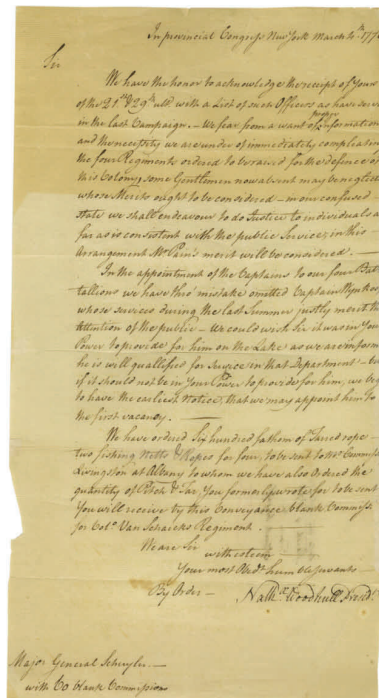 In provincial Congress New York March 4th. 177
Sir
We have the honor to acknowledge the receipt of Yours
of the 21st & 29th ulto. with a List of such Officers as have serv
in the last Campaign. – We fear from a want of proper Information
and the necessity we are under of immediately compleating
the four Regiments ordered to be raised for the defence of
this Colony, some Gentlemen now absent may be neglect
whose Merits ought to be considered – in our confused
state we shall endeavour to do Justice to individuals as
far as is consistent with the public Service; in this
arrangement Mr. Pain's merit will be considered. –
In the appointment of the Captains to our four Bat
tallions we have thro' mistake omitted Captain
whose services during the last Summer justly merit the
Attention of the public – We could wish Sir it was in Your
Power to provide for him on the Lake as we are inform
he is well qualified for Service in that Department – but
if it should not be in Your Power to provide for him, we beg
to have the earliest Notice, that we may appoint him to
the first vacancy. –
We have ordered Six hundred fathom of Tarred rope –
two fishing Netts & Ropes for four, to be sent to Mr. Commissy
Livingston at Albany to whom we have also Ordered the
quantity of Pitch & Tar, You formerly wrote for to be sent
You will receive by this Conveyance blank Commiss
for Colo. Van Schaicks Regiment.
We are Sir
with esteem
Your most Obedt. hum Servants –
By Order – Nathl. Woodhull Presidt.
Major General Schuyler. –
with 60 blank Commissions